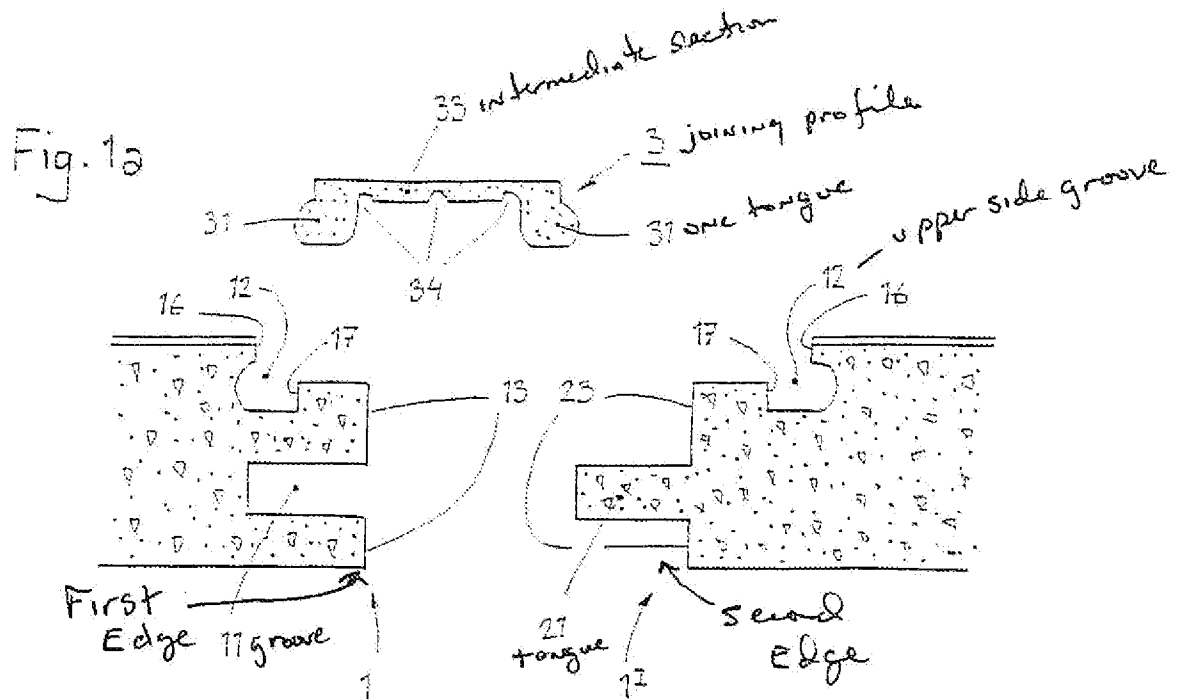 33 intermediate section
Fig. 1a
3 joining profile
31
31 one tongue
34
upper side groove
16 12
12 16
17
17
13 23
First Edge
11 groove
21 tongue
Second Edge
1
1I